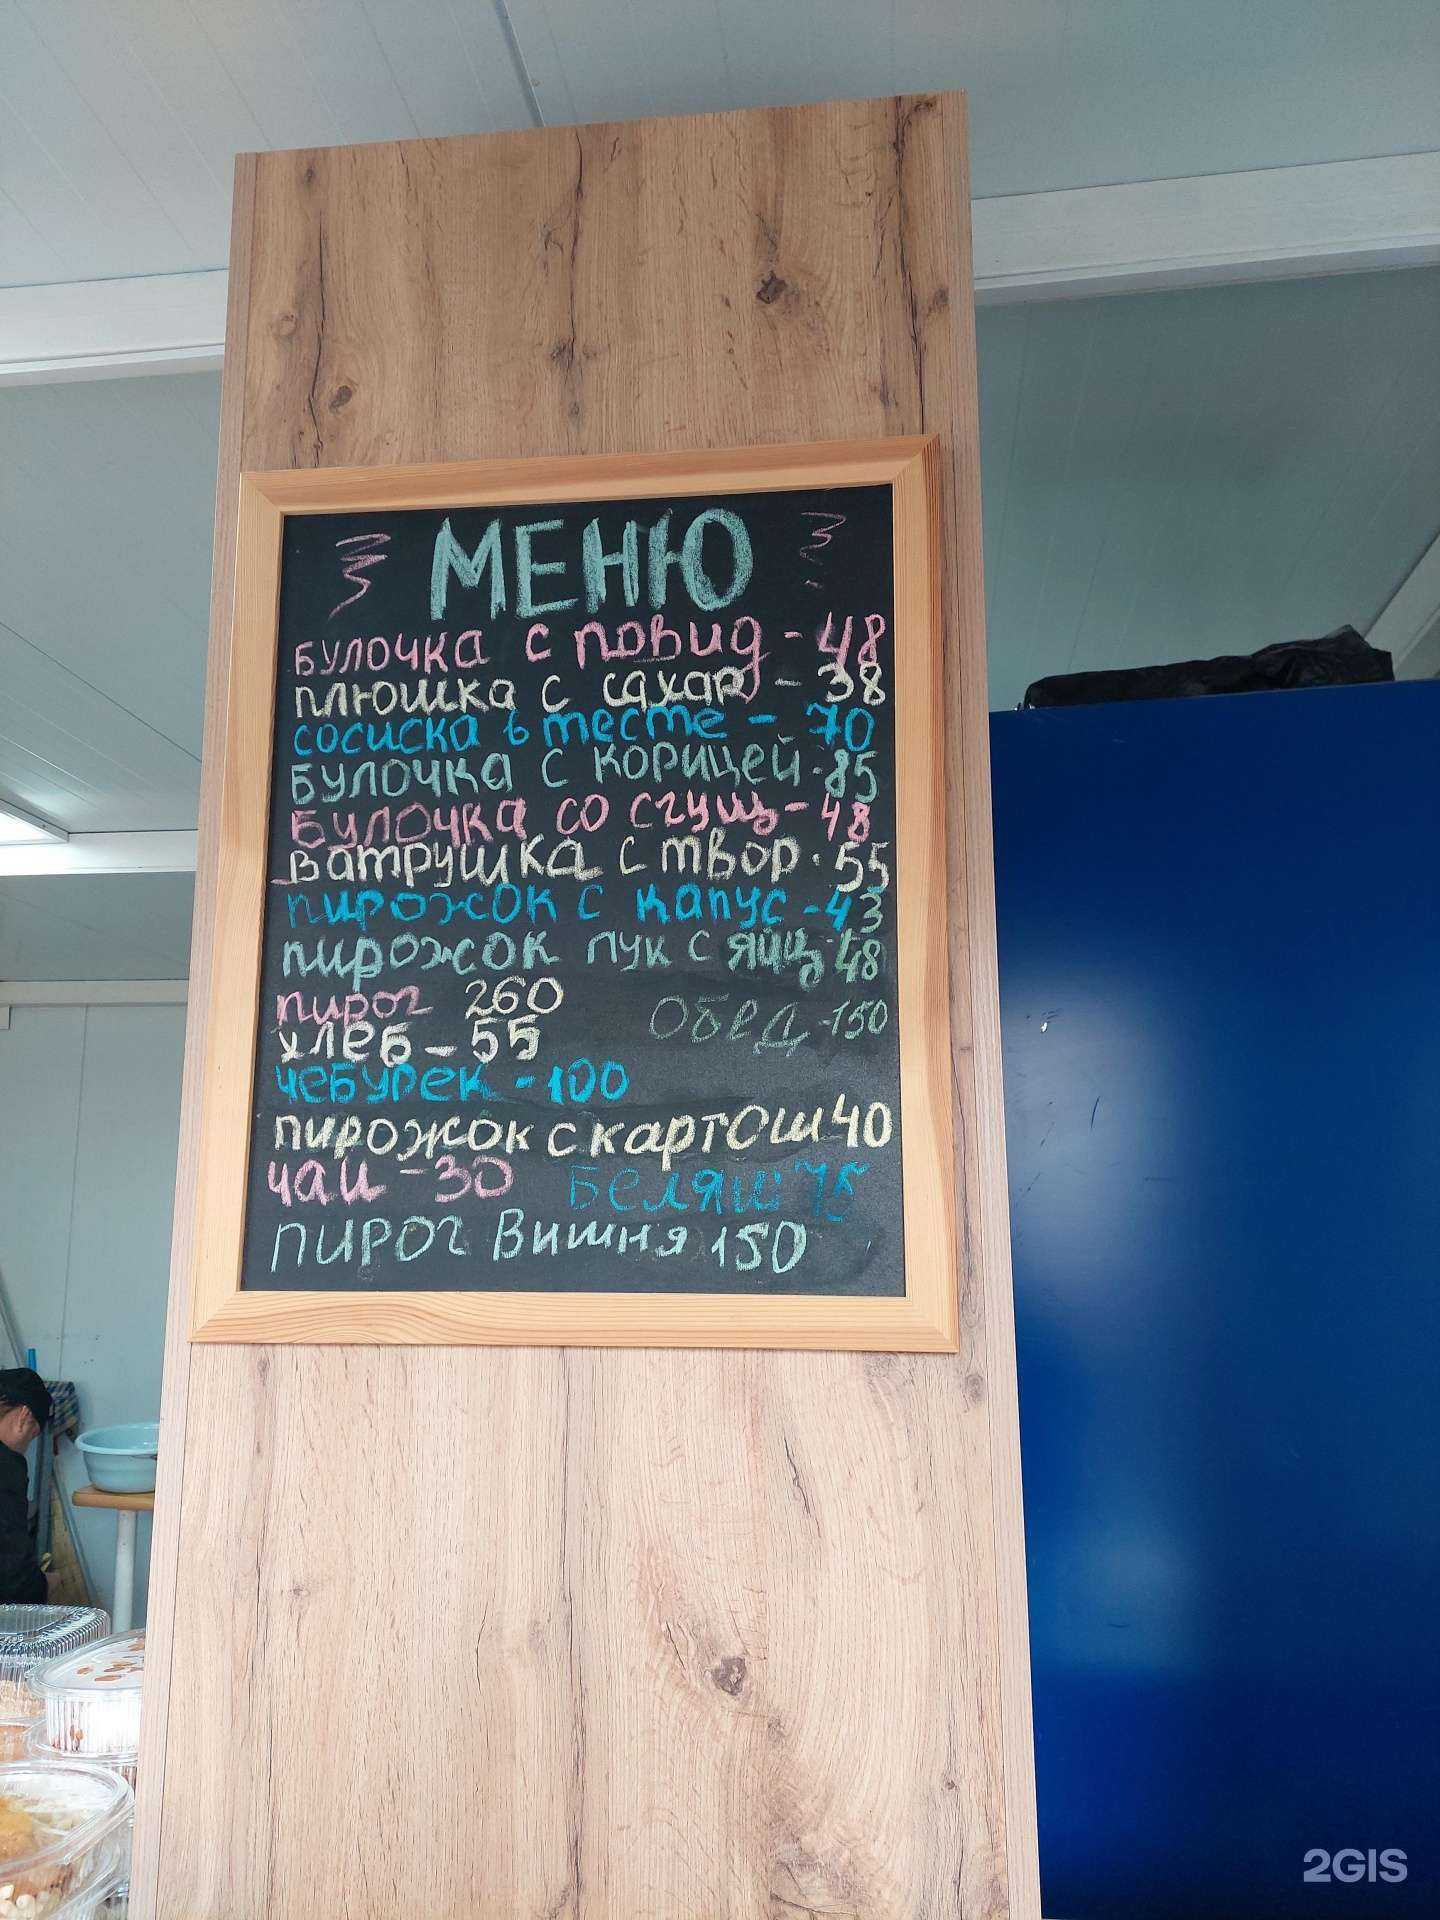 МЕНЮ
БУЛОЧКА с повид - 48
плюшка с сахар - 38
сосиска в тесте - 70
БУЛОЧКА с корицей - 85
Булочка со сгущ - 48
ватрушка с твор - 55
пирожок с капус - 43
пирожок лук с яйц - 48
пирог 260
ОБЕД - 150
хлеб - 55
чебурек - 100
пирожок с картош 40
чаи - 30
Беляш 75
пирог Вишня 150
2GIS